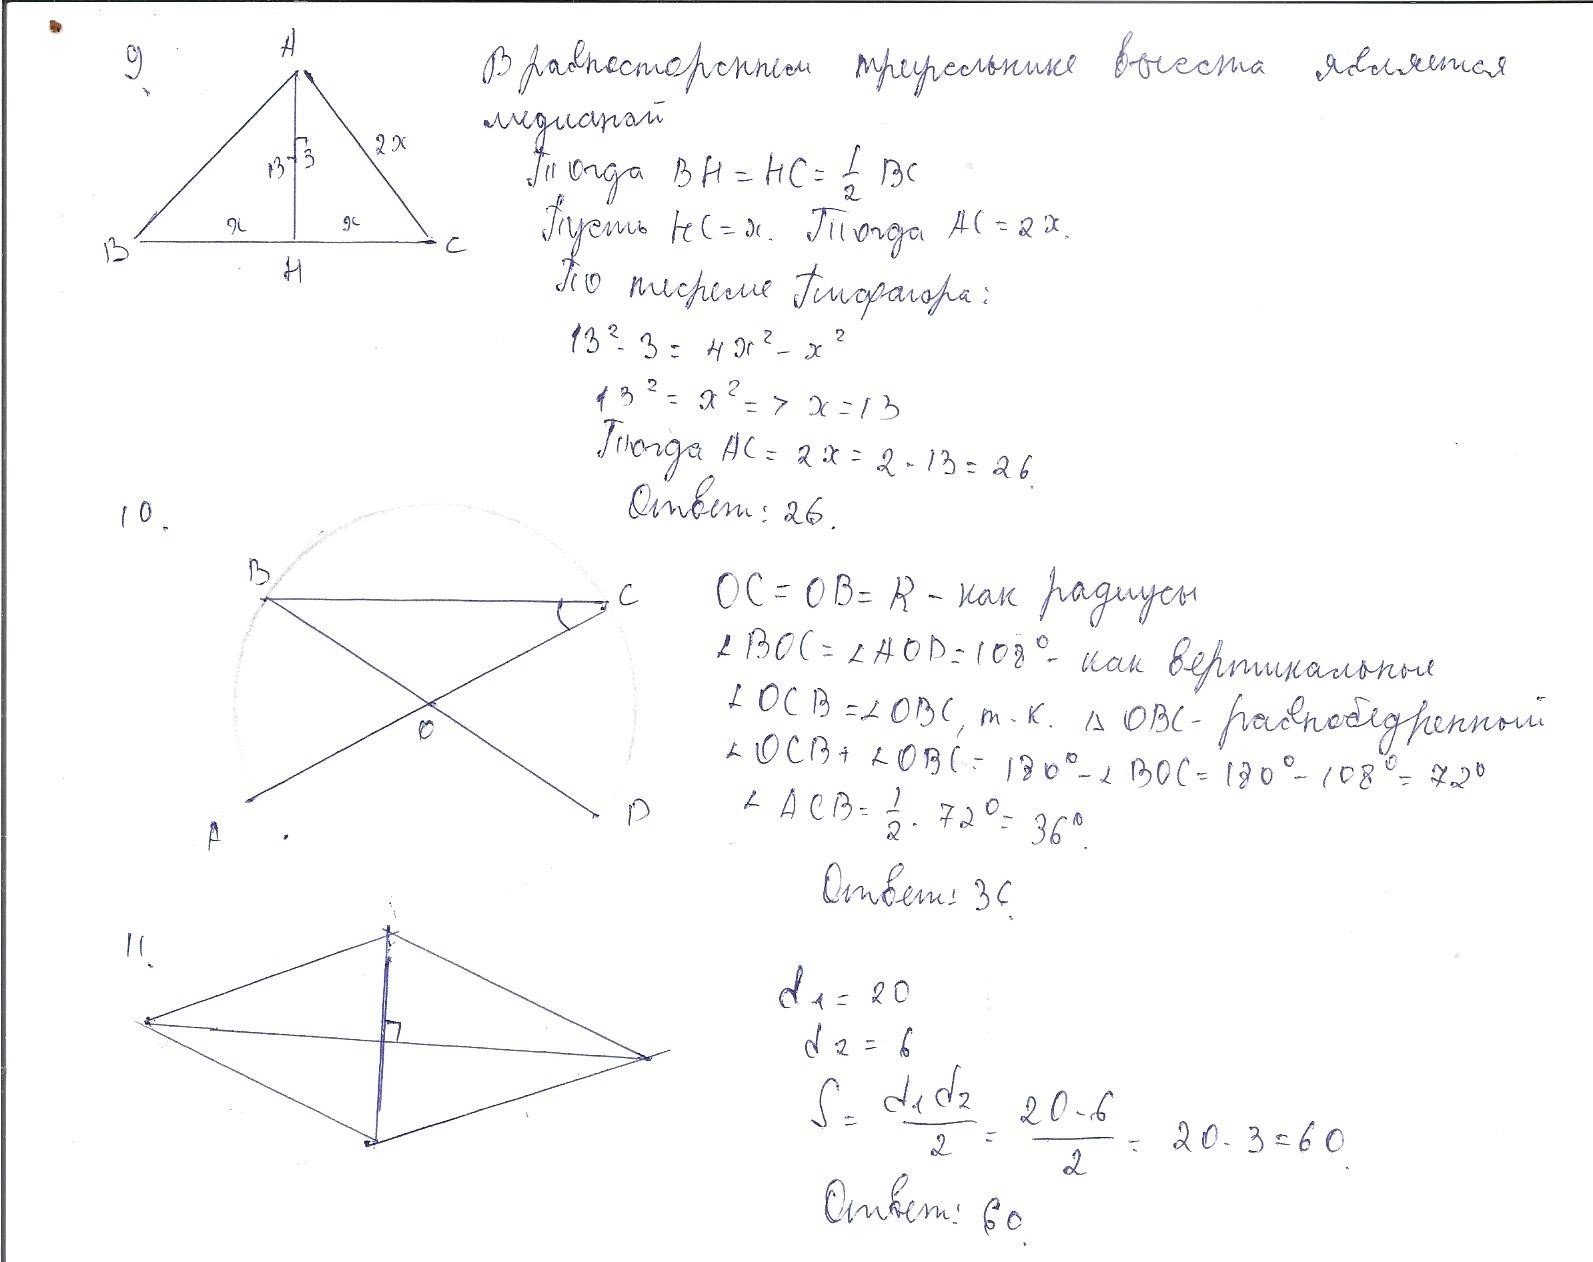 9.
A
13√3
2x
x
x
B
H
C
В равностороннем треугольнике высота является
медианой
Тогда BH = HC = 1/2 BC
Пусть HC = x. Тогда AC = 2x.
По теореме Пифагора:
13² · 3 = 4x² - x²
13² = x² => x = 13
Тогда AC = 2x = 2 · 13 = 26.
Ответ: 26.
10.
B
C
O
A
D
OC = OB = R - как радиусы
∠BOC = ∠AOD = 108° - как вертикальные
∠OCB = ∠OBC, т.к. △ OBC - равнобедренный
∠OCB + ∠OBC = 180° - ∠BOC = 180° - 108° = 72°
∠ACB = 1/2 · 72° = 36°.
Ответ: 36.
11.
d1 = 20
d2 = 6
S = d1d2/2 = 20 · 6/2 = 20 · 3 = 60.
Ответ: 60.